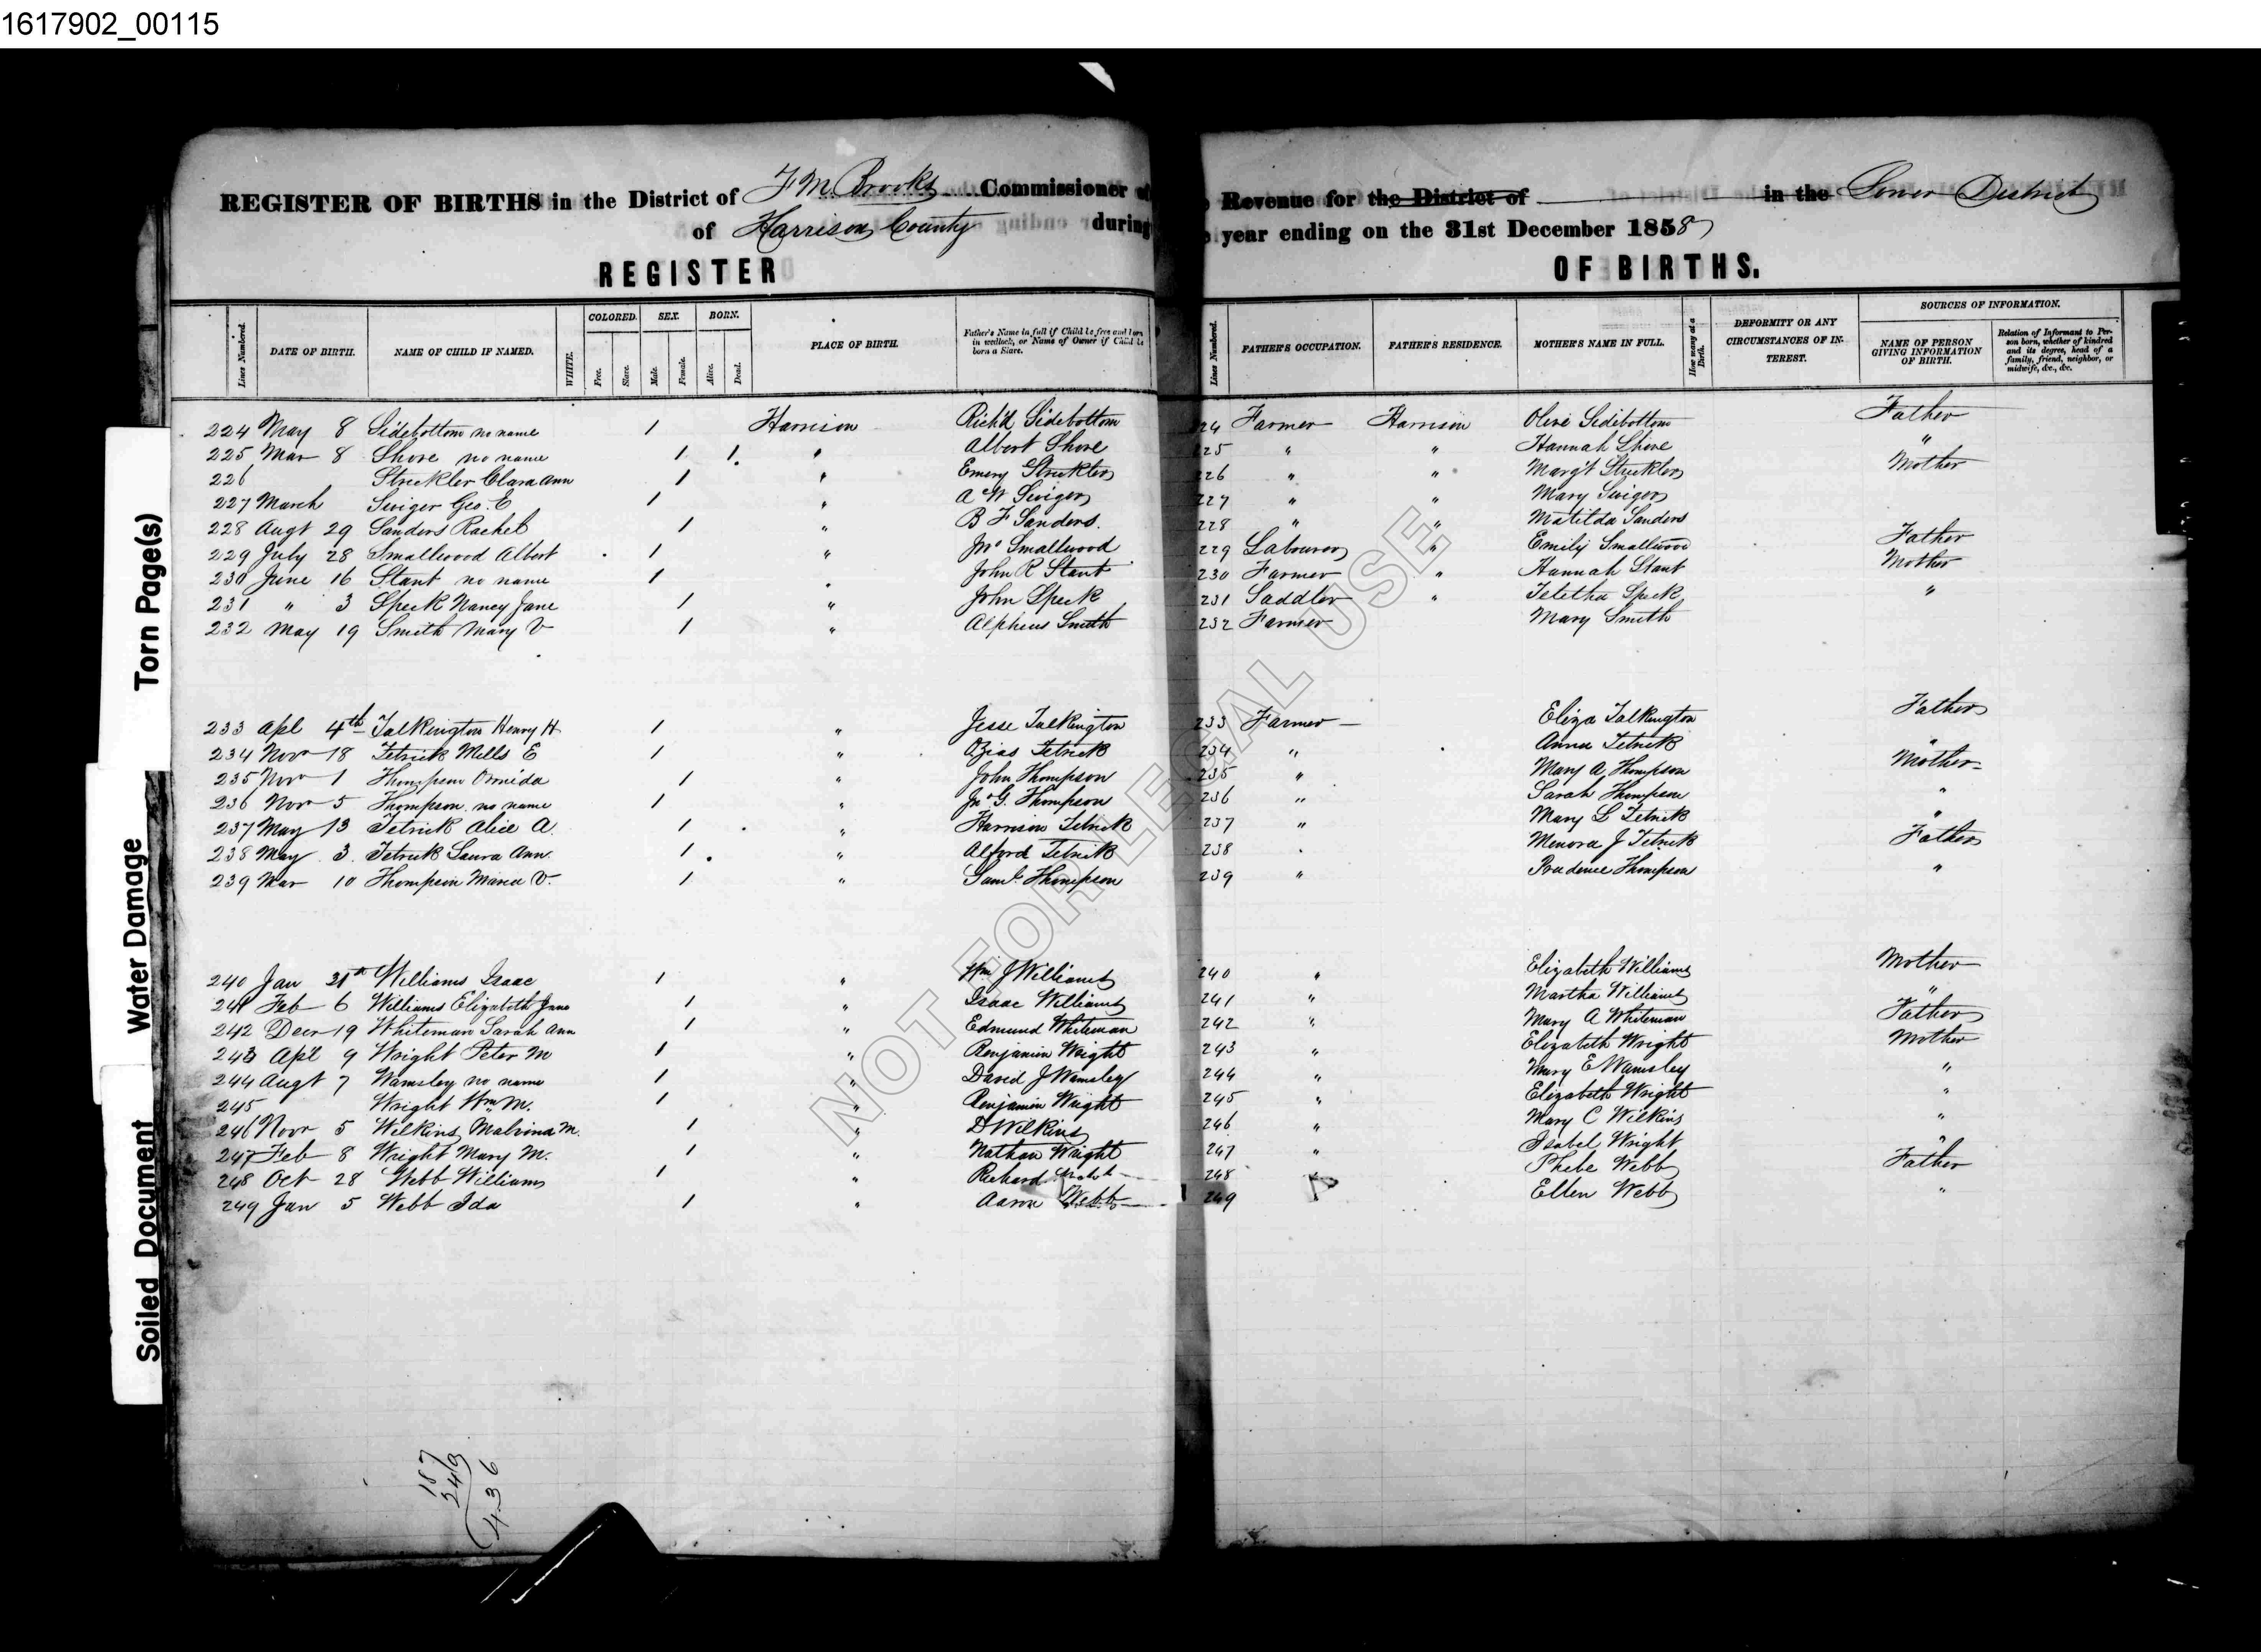 1617902_00115
REGISTER OF BIRTHS in the District of F M Brooks Commissioner of Revenue for the District of in the Lower District
of Harrison County during year ending on the 31st December 1858
REGISTER OF BIRTHS.
Lines Numbered. DATE OF BIRTH. NAME OF CHILD IF NAMED. WHITE. COLORED. Free. Slave. SEX. Male. Female. BORN. Alive. Dead. PLACE OF BIRTH. Father's Name in full if Child be free and born in wedlock, or Name of Owner if Child be born a Slave. Lines Numbered. FATHER'S OCCUPATION. FATHER'S RESIDENCE. MOTHER'S NAME IN FULL. How many at a Birth. DEFORMITY OR ANY CIRCUMSTANCES OF INTEREST. SOURCES OF INFORMATION. NAME OF PERSON GIVING INFORMATION OF BIRTH. Relation of Informant to Person born, whether of kindred and its degree, head of a family, friend, neighbor, or midwife, &c., &c.
224 May 8 Sidebottom no name 1 Harrison Rich'd Sidebottom 224 Farmer Harrison Olive Sidebottom Father
225 Mar 8 Shore no name 1 1 " Albert Shore 225 " " Hannah Shore "
226 Strickler Clara Ann 1 " Emery Strickler 226 " " Marg't Strickler Mother
227 March Swiger Geo. E 1 " A W Swiger 227 " " Mary Swiger
228 Augt 29 Sanders Rachel 1 " B F Sanders. 228 " " Matilda Sanders
229 July 28 Smallwood Albert 1 " Jno Smallwood 229 Labourer " Emily Smallwood Father
230 June 16 Stant no name 1 " John R Stant 230 Farmer " Hannah Stant Mother
231 " 3 Speck Nancy Jane 1 " John Speck 231 Saddler " Teletha Speck "
232 May 19 Smith Mary V 1 " Alpheus Smith 232 Farmer Mary Smith
233 Apl 4th Talkington Henry H 1 " Jesse Talkington 233 Farmer Eliza Talkington Father
234 Novr 18 Tetrick Mills E 1 " Ozias Tetrick 234 " Anna Tetrick "
235 Novr 1 Thompson Ormida 1 " John Thompson 235 " Mary A Thompson Mother
236 Novr 5 Thompson no name 1 " Jno G. Thompson 236 " Sarah Thompson "
237 May 13 Tetrick Alice A. 1 " Harrison Tetrick 237 " Mary L Tetrick "
238 May 3 Tetrick Laura Ann. 1 " Alford Tetrick 238 " Menora J Tetrick Father
239 Mar 10 Thompson Maria V. 1 " Saml. Thompson 239 " Prudence Thompson "
240 Jan 31st Williams Isaac 1 " Wm J Williams 240 " Elizabeth Williams Mother
241 Feb 6 Williams Elizabeth Jane 1 " Isaac Williams 241 " Martha Williams "
242 Decr 19 Whiteman Sarah Ann 1 " Edmund Whiteman 242 " Mary A Whiteman Father
243 Apl 9 Wright Peter M 1 " Benjamin Wright 243 " Elizabeth Wright Mother
244 Augt 7 Wamsley no name 1 " David J Wamsley 244 " Mary E Wamsley "
245 Wright Wm M. 1 " Benjamin Wright 245 " Elizabeth Wright "
246 Novr 5 Wilkins Malvina M. 1 " D Wilkins 246 " Mary C Wilkins "
247 Feb 8 Wright Mary M. 1 " Nathan Wright 247 " Isabel Wright "
248 Oct 28 Webb Williams 1 " Richard 248 Phebe Webb Father
249 Jan 5 Webb Ida 1 " Aaron Webb 249 Ellen Webb "
187
249
436
Torn Page(s)
Water Damage
Soiled Document
NOT FOR LEGAL USE